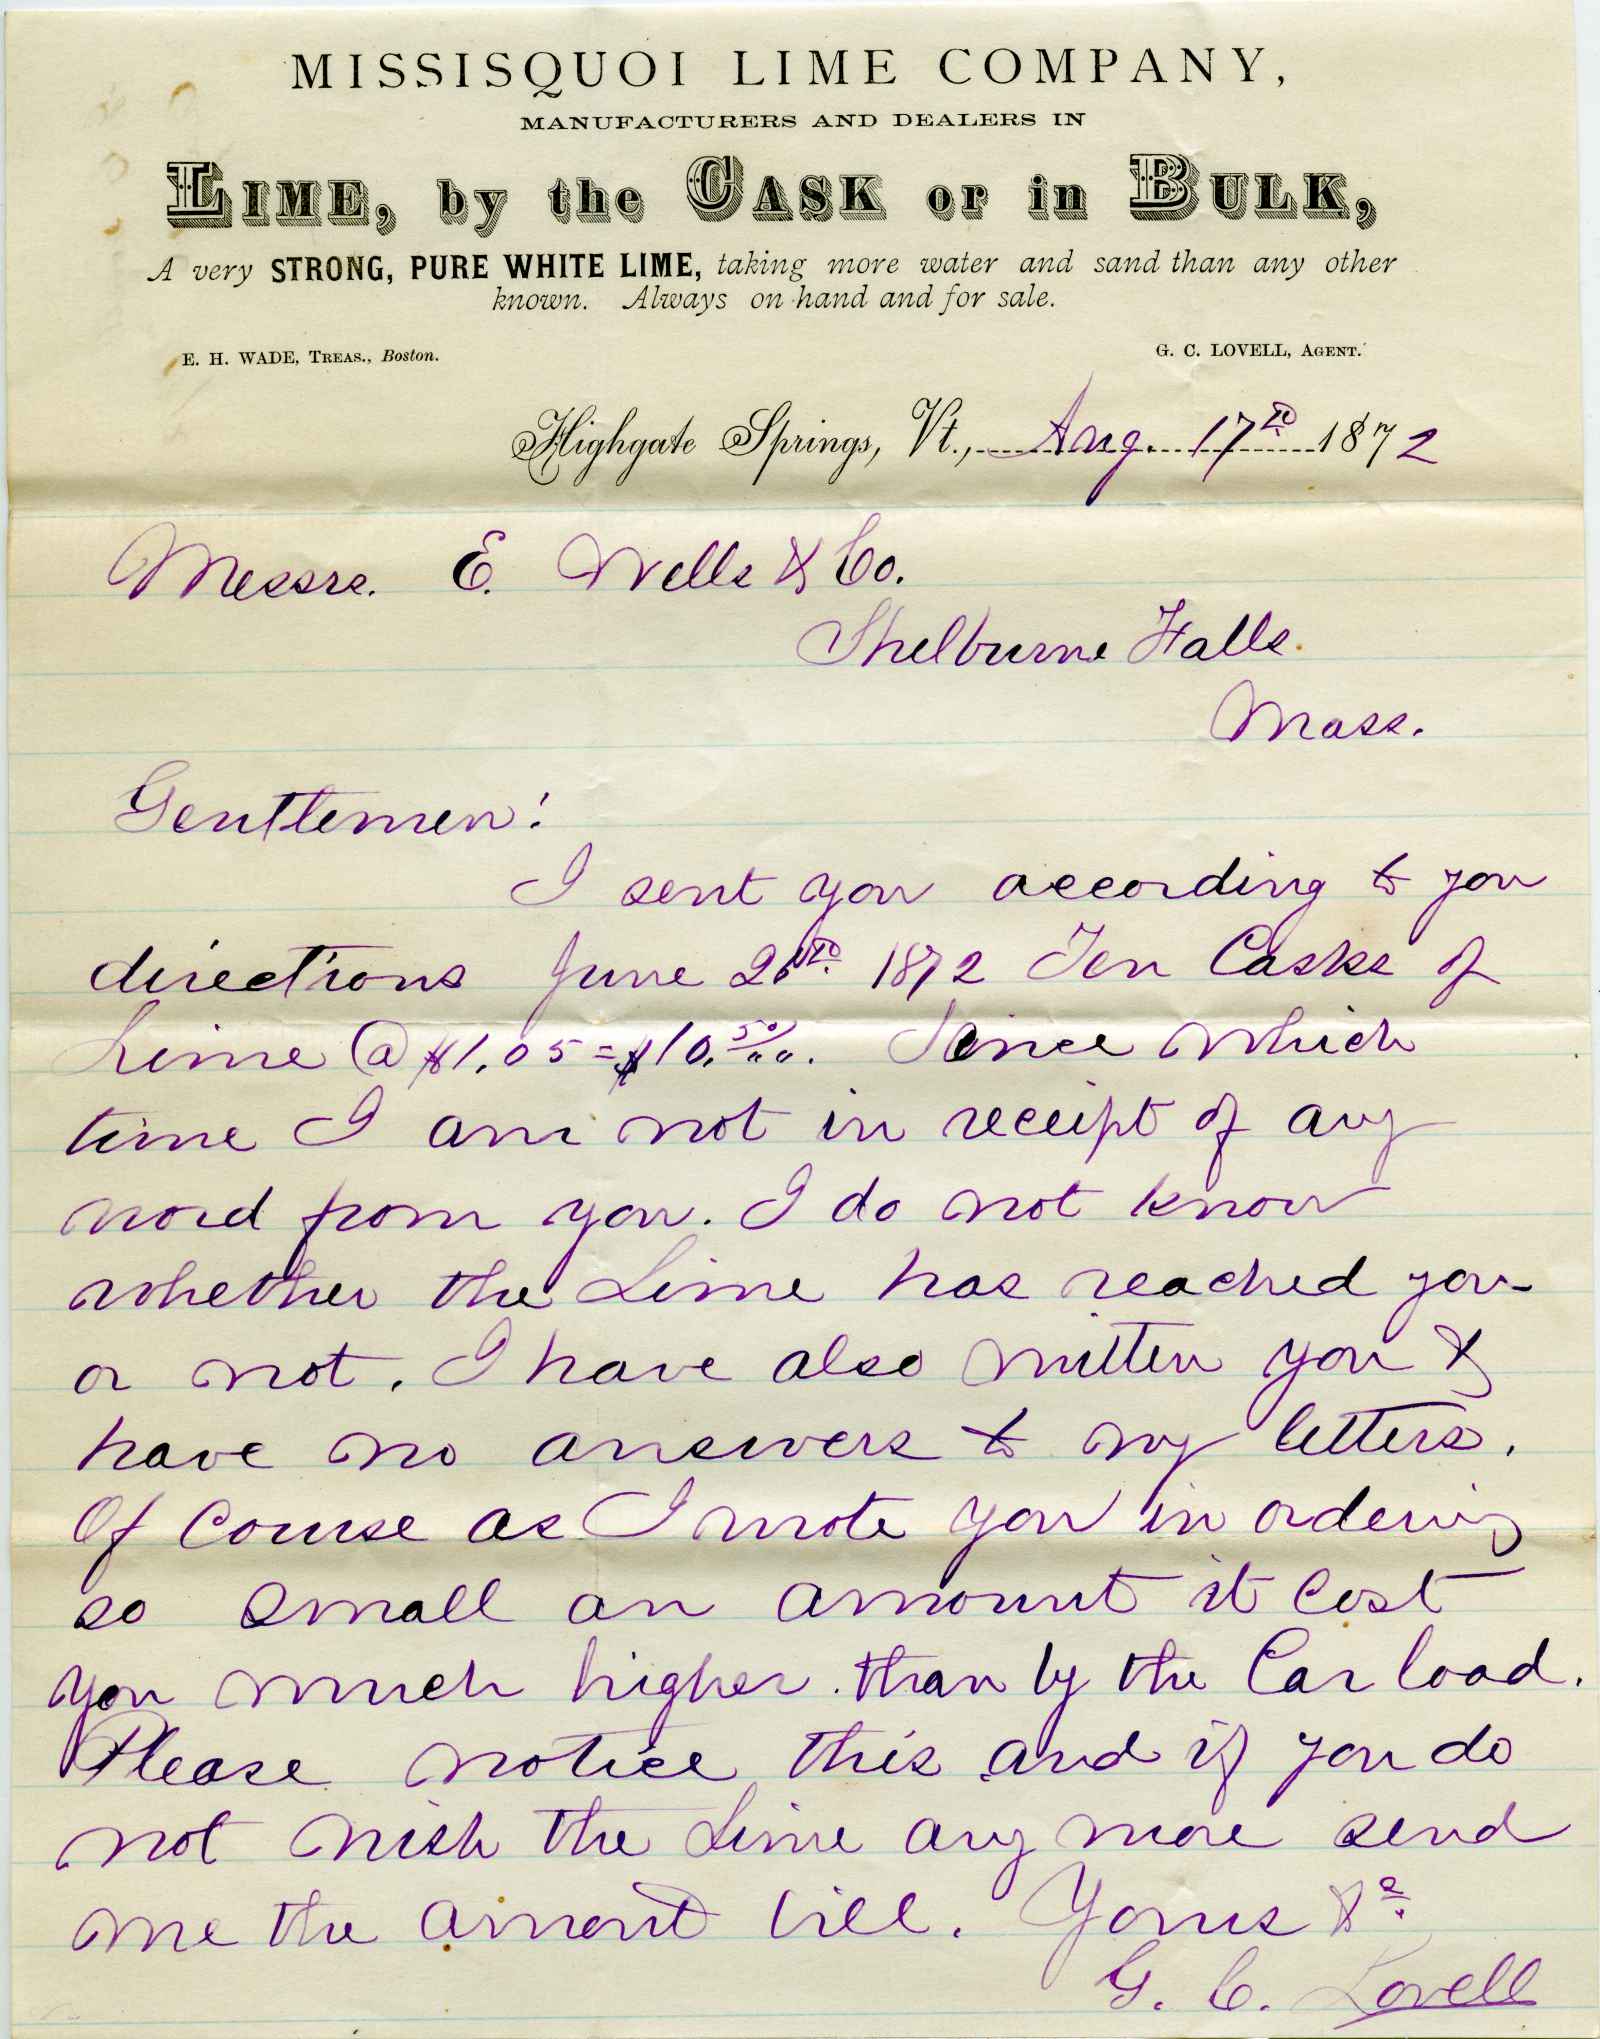 MISSISQUOI LIME COMPANY,
MANUFACTURERS AND DEALERS IN
LIME, by the CASK or in BULK,
A very STRONG, PURE WHITE LIME, taking more water and sand than any other
known. Always on hand and for sale.
E. H. WADE, TREAS., Boston. G. C. LOVELL, AGENT.
Highgate Springs, Vt., Aug. 17th 1872
Messrs. E. Wells & Co.
Shelburne Falls.
Mass.
Gentlemen!
I sent you according to you
directions June 1872 Ten Casks of
Lime @ $1.05 = $10.50/00. Since which
time I am not in receipt of any
word from you. I do not know
whether the Lime has reached you
or not. I have also written you &
have no answers to my letters.
Of course as I wrote you in ordering
so small an amount it cost
you much higher than by the Car load.
Please notice this and if you do
not wish the Lime any more send
me the amount bill. Yours &c.
G. C. Lovell